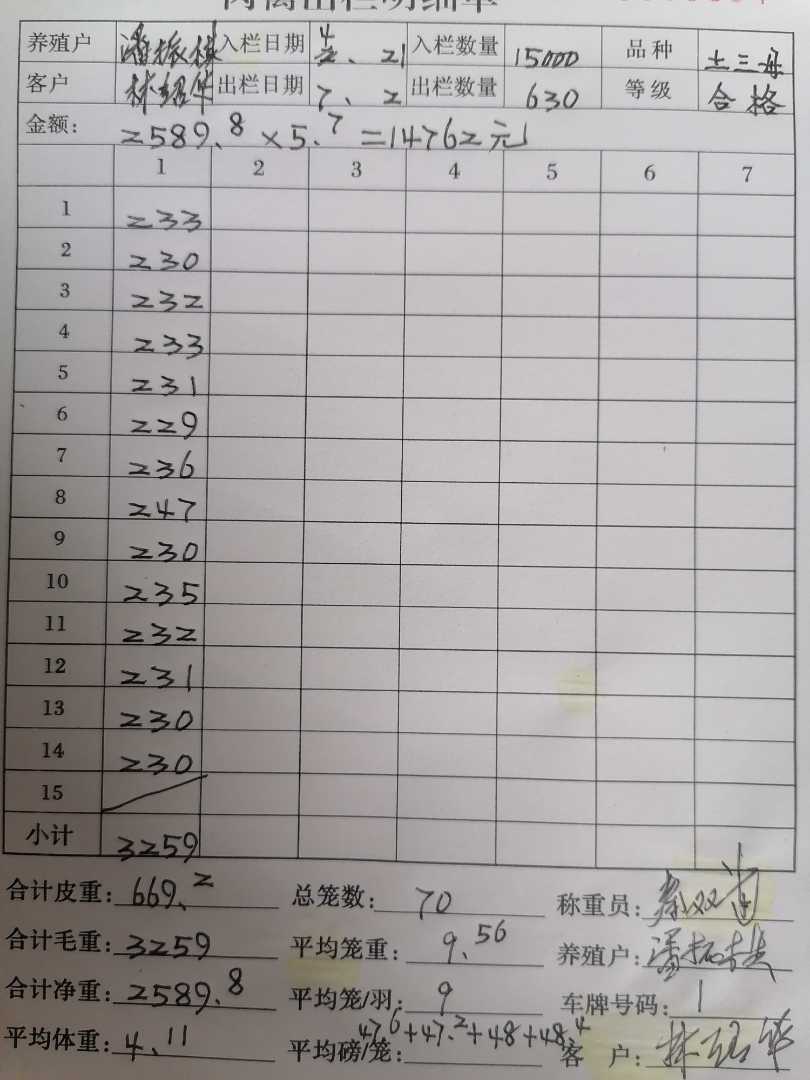 肉禽出栏明细单
养殖户 潘振 入栏日期 4、21 入栏数量 15000 品种 土三母
客户 林绍华 出栏日期 7、2 出栏数量 630 等级 合格
金额: 2589.8×5.7=14762元
1 2 3 4 5 6 7
1 233
2 230
3 232
4 233
5 231
6 229
7 236
8 247
9 230
10 235
11 232
12 231
13 230
14 230
15
小计 3259
合计皮重: 669.2 总笼数: 70 称重员:
合计毛重: 3259 平均笼重: 9.56 养殖户: 潘
合计净重: 2589.8 平均笼/羽: 9 车牌号码: 1
平均体重: 4.11 平均磅/笼: 47.6+47.2+48+48.4 客 户: 林绍华